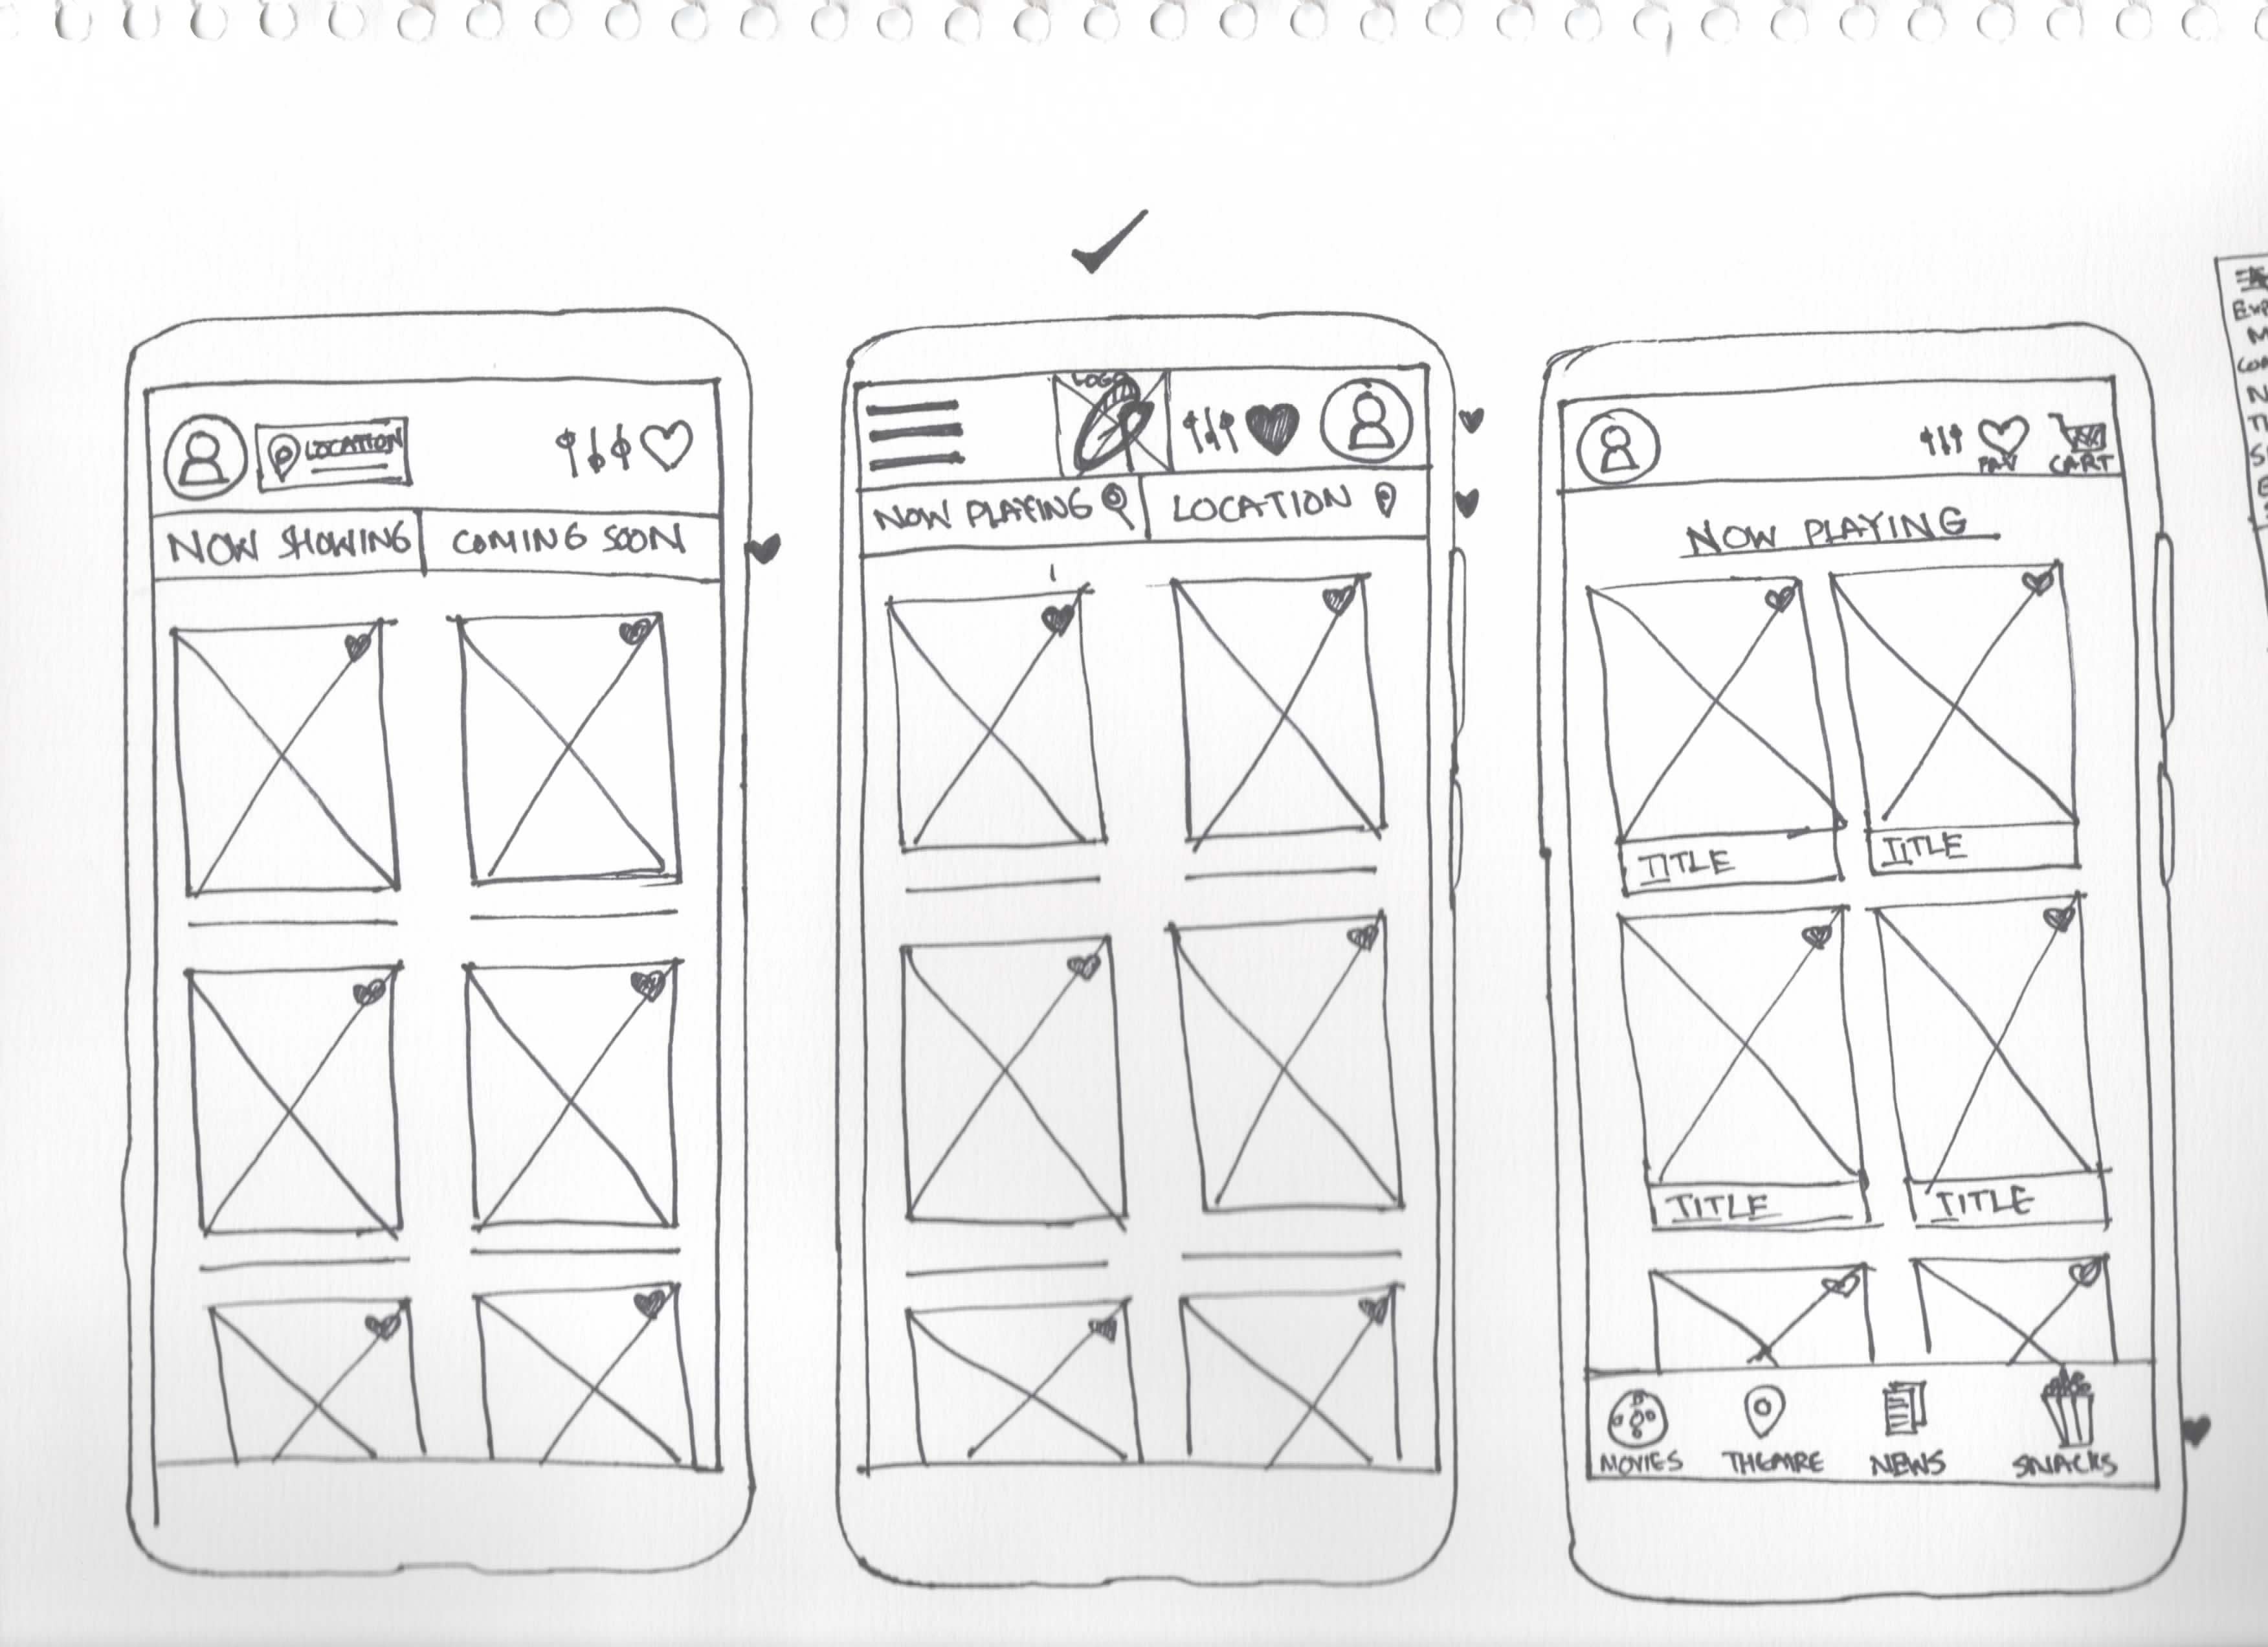 LOCATION
NOW SHOWING
COMING SOON
LOGO
NOW PLAYING
LOCATION
FAV
CART
NOW PLAYING
TITLE
TITLE
TITLE
TITLE
MOVIES
THEATRE
NEWS
SNACKS